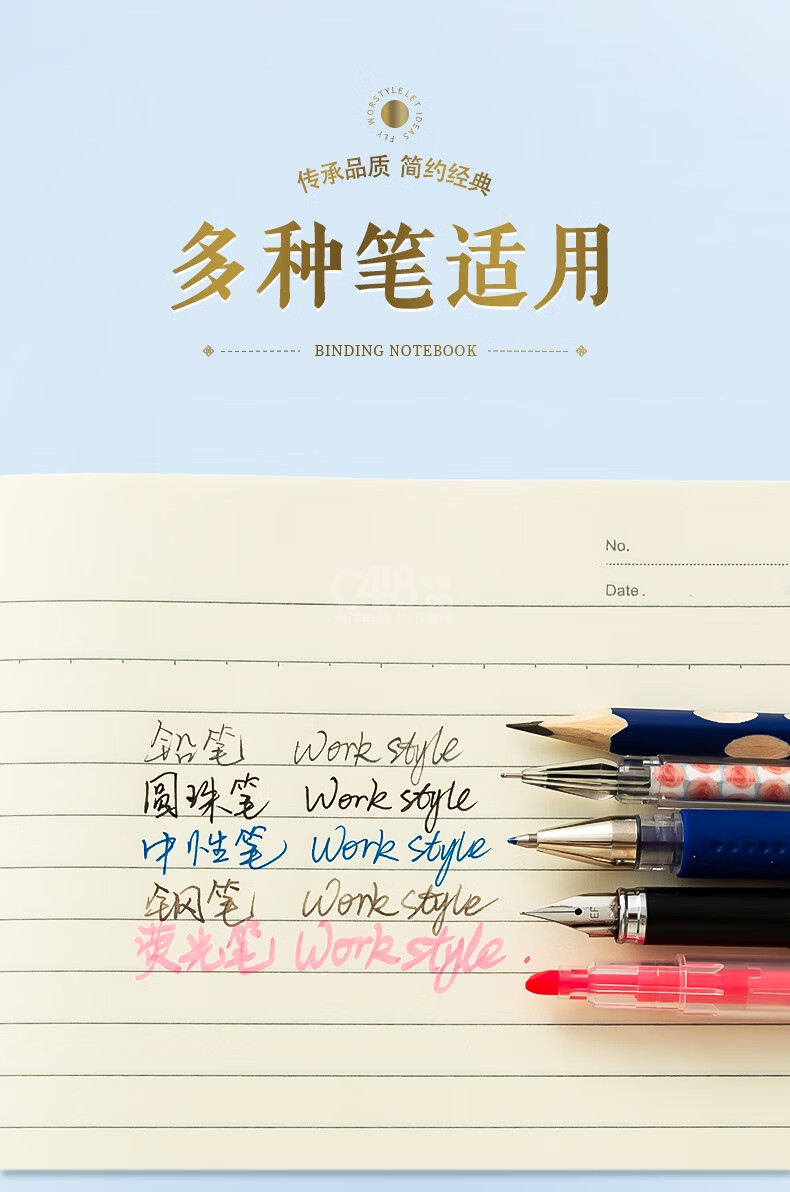 WORSTYLELET IDEAS FLY
传承品质 简约经典
多种笔适用
BINDING NOTEBOOK
No.
Date.
铅笔 Work style
圆珠笔 Work style
中性笔 Work style
钢笔 Work style
荧光笔 Work style.
EF